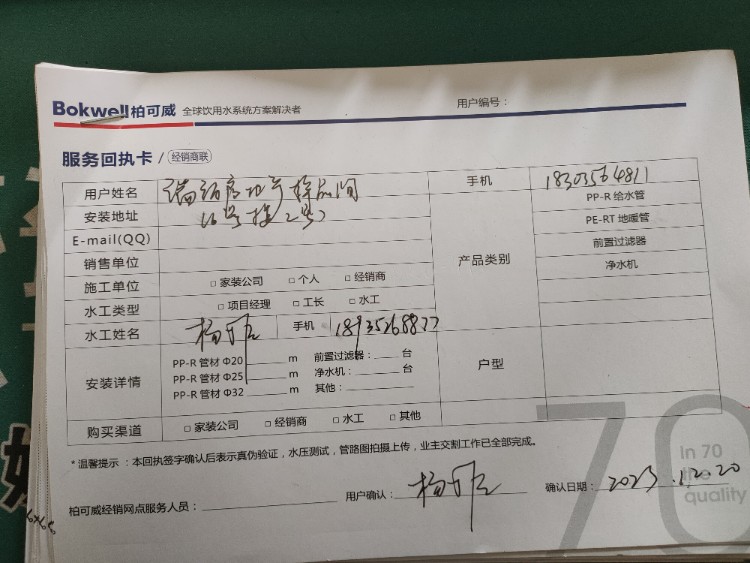 Bokwell柏可威 全球饮用水系统方案解决者 用户编号：
服务回执卡 / 经销商联
用户姓名 房地产样品间 手机 18303564811
安装地址 16号楼2号
E-mail(QQ)
销售单位
施工单位 □ 家装公司 □ 个人 □ 经销商
水工类型 □ 项目经理 □ 工长 □ 水工
水工姓名 杨 手机 18935268877
产品类别
PP-R 给水管
PE-RT 地暖管
前置过滤器
净水机
安装详情
PP-R 管材 Φ20 m 前置过滤器： 台
PP-R 管材 Φ25 m 净水机： 台
PP-R 管材 Φ32 m 其他：
户型
购买渠道 □ 家装公司 □ 经销商 □ 水工 □ 其他
* 温馨提示 ：本回执签字确认后表示真伪验证，水压测试，管路图拍摄上传，业主交割工作已全部完成。
柏可威经销网点服务人员： 用户确认： 杨 确认日期： 2023.12.20
70
In 70
the
quality